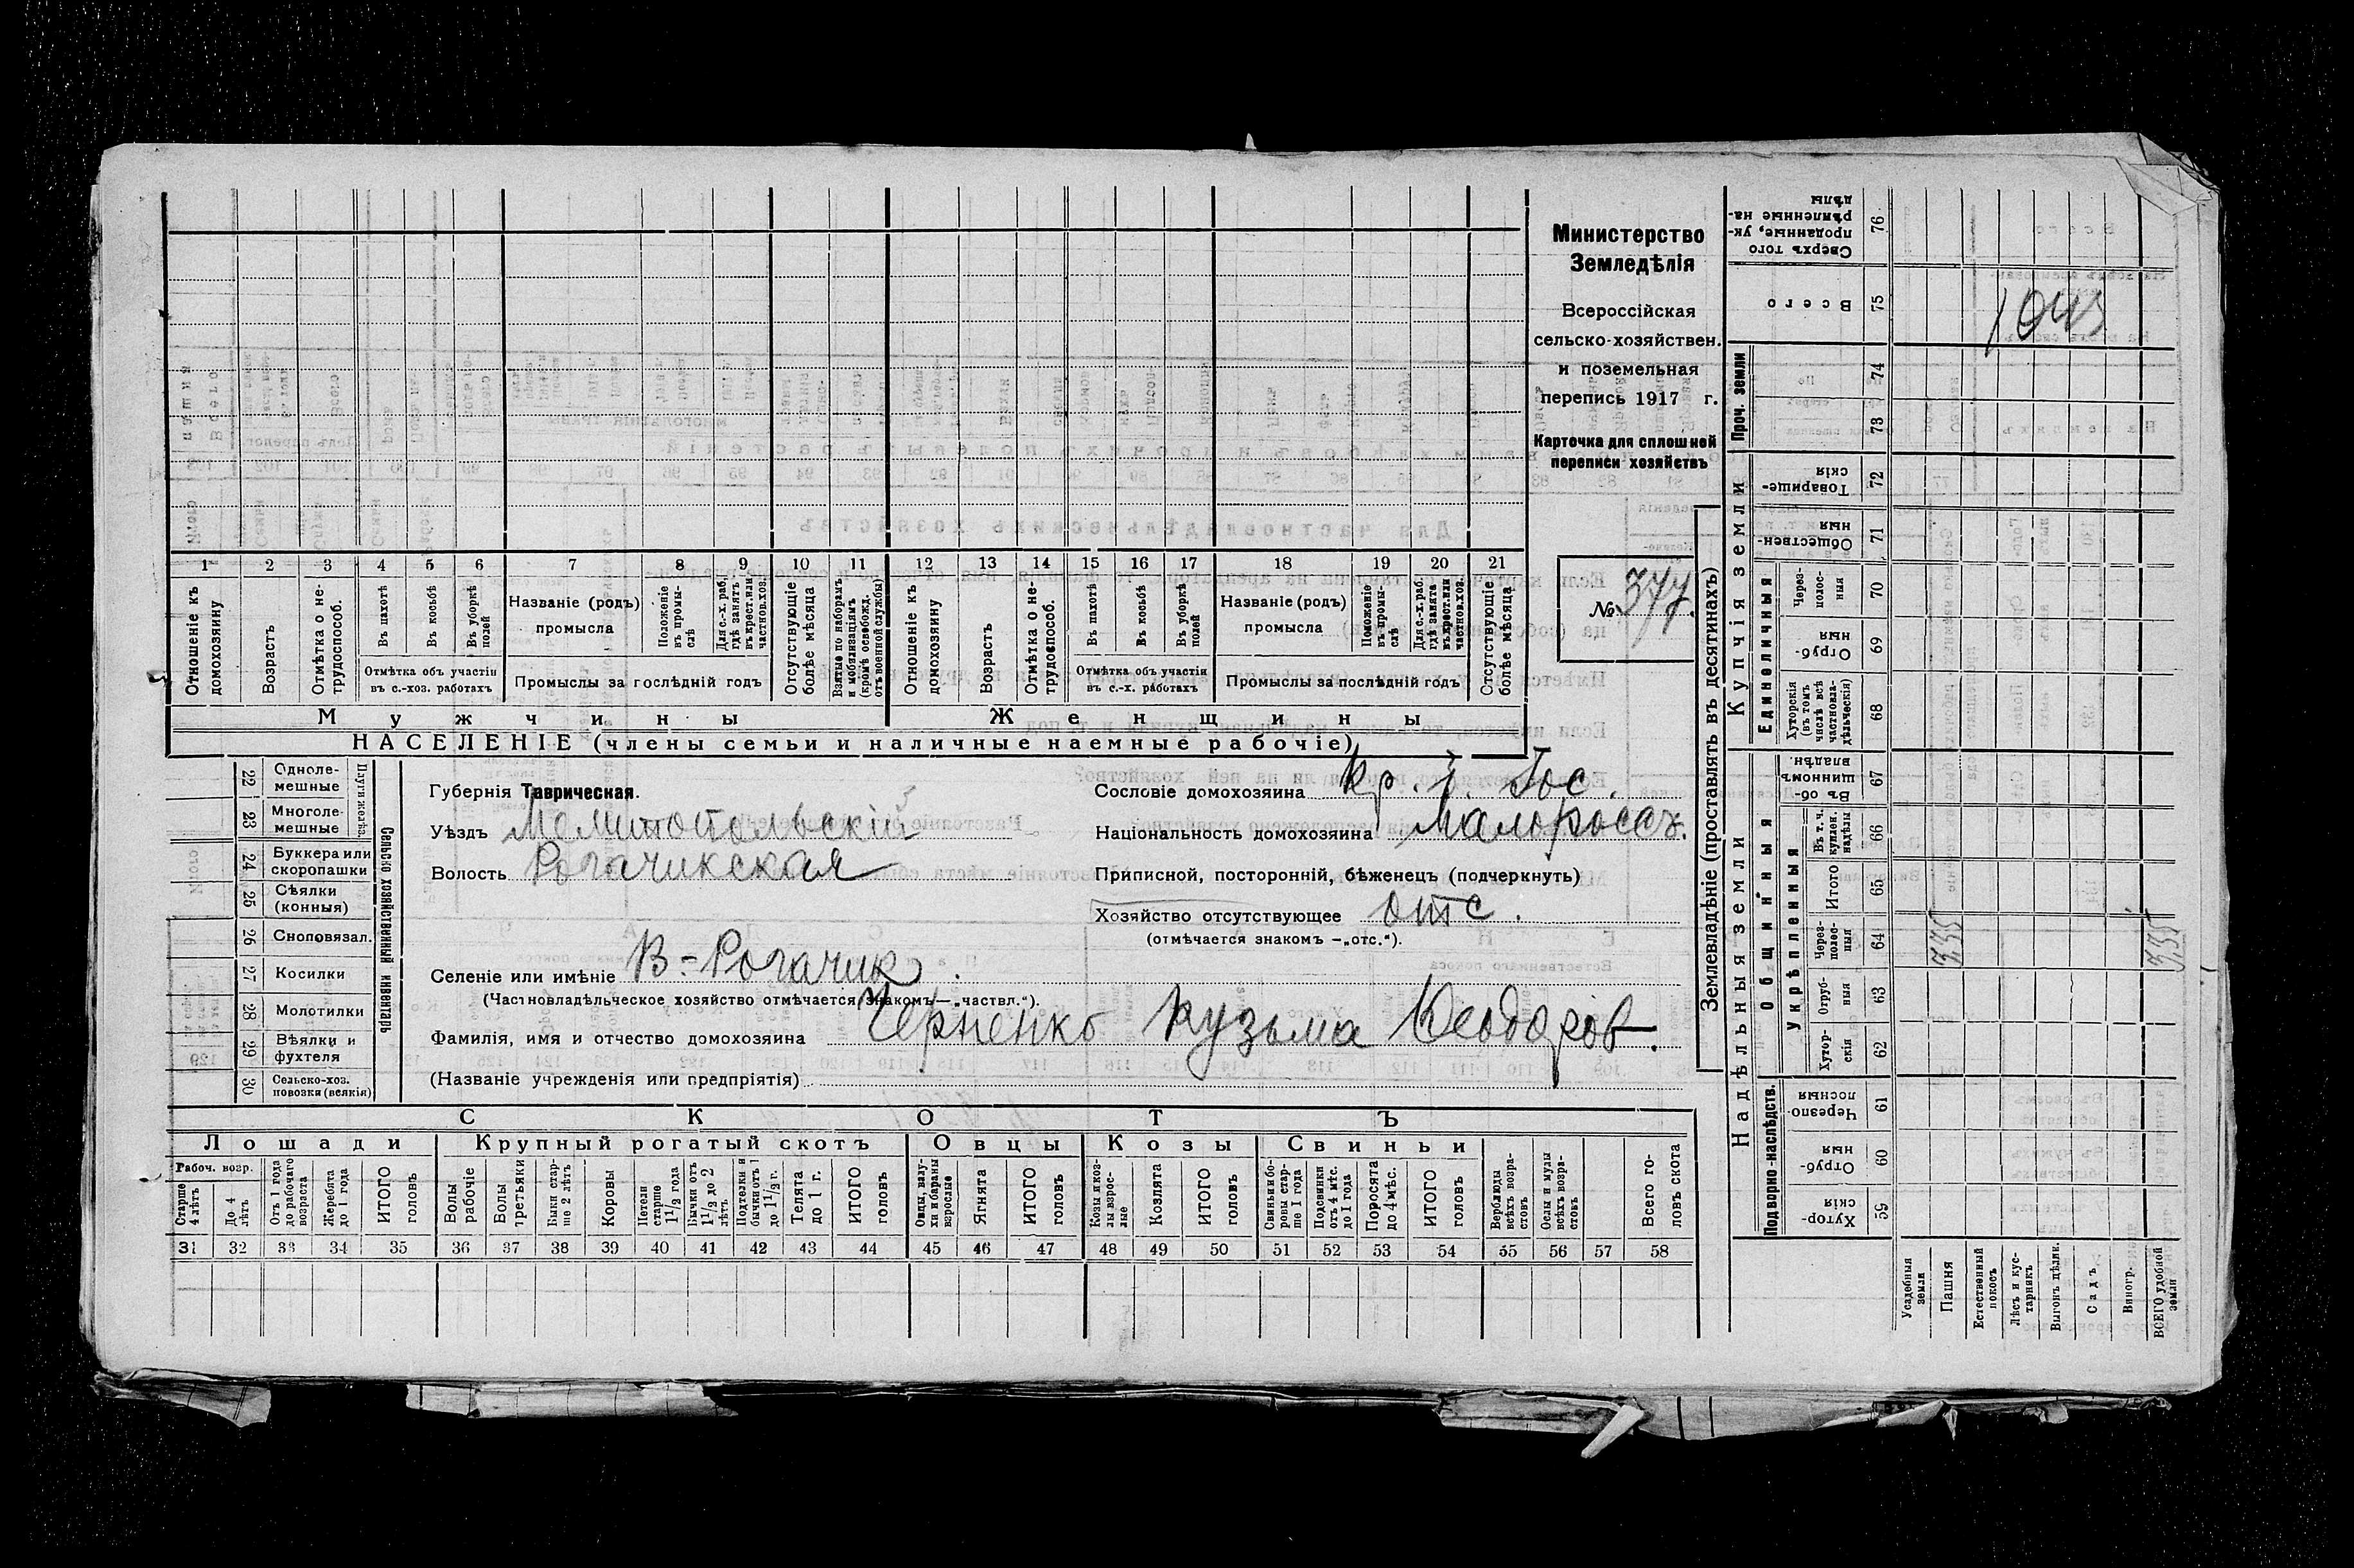 Министерство
Земледѣлія
Всероссійская
сельско-хозяйствен.
и поземельная
перепись 1917 г.
Карточка для сплошней
переписи хозяйствъ
№ 377.
1 2 3 4 5 6 7 8 9 10 11 12 13 14 15 16 17 18 19 20 21
Отношеніе къ домохозяину
Возрастъ
Отмѣтка о не-трудоспособ.
Въ пахотѣ
Въ косьбѣ
Въ уборкѣ полей
Отмѣтка объ участіи въ с.-хоз. работахъ
Названіе (родъ) промысла
Положеніе въ промы-слѣ
Для с.-х. раб. гдѣ занятъ въ крест. или частнов. хоз.
Промыслы за послѣдній годъ
Отсутствующіе болѣе мѣсяца
Взятые по наборамъ и мобилизаціямъ (кромѣ освобожд. отъ военной службы)
Отношеніе къ домохозяину
Возрастъ
Отмѣтка о не-трудоспособ.
Въ пахотѣ
Въ косьбѣ
Въ уборкѣ полей
Отмѣтка объ участіи въ с.-х. работахъ
Названіе (родъ) промысла
Положеніе въ промы-слѣ
Для с.-х. раб. гдѣ занята въ крест. или частнов. хоз.
Промыслы за послѣдній годъ
Отсутствующіе болѣе мѣсяца
Мужчины
Женщины
НАСЕЛЕНІЕ (члены семьи и наличные наемные рабочіе)
22 Одноле-мешные
23 Многоле-мешные
Плуги желѣз.
24 Буккера или скоропашки
25 Сѣялки (конныя)
26 Сноповязал.
27 Косилки
28 Молотилки
29 Вѣялки и фухтеля
30 Сельско-хоз. повозки (всякія)
Сельско хозяйственный инвентарь
Губернія Таврическая.
Уѣздъ Мелитопольскій
Волость Рогачикская
Селеніе или имѣніе В.-Рогачик.
(Частновладѣльческое хозяйство отмѣчается знакомъ—„частвл.“).
Фамилія, имя и отчество домохозяина Черненко Кузьма Феодоров.
(Названіе учрежденія или предпріятія)
Сословіе домохозяина кр. б. Гос.
Національность домохозяина Малоросъ.
Приписной, посторонній, бѣженецъ (подчеркнуть)
Хозяйство отсутствующее отс.
(отмѣчается знакомъ —„отс.“).
СКОТЪ
Лошади
Крупный рогатый скотъ
Овцы
Козы
Свиньи
Рабоч. возр.
Старше 4 лѣтъ
До 4 лѣтъ
Отъ 1 года до рабочаго возраста
Жеребята до 1 года
ИТОГО головъ
Волы рабочіе
Волы третьяки
Быки стар-ше 2 лѣтъ
Коровы
Нетели старше 1 1/2 года
Бычки отъ 1 1/2 до 2 лѣтъ
Подтелки и бычки отъ 1 до 1 1/2 г.
Телята до 1 г.
ИТОГО головъ
Овцы, валу-хи и бараны взрослые
Ягнята
ИТОГО головъ
Козы и коз-лы взрос-лые
Козлята
ИТОГО головъ
Свиньи и бо-ровы стар-ше 1 года
Подсвинки отъ 4 мѣс. до 1 года
Поросята до 4 мѣс.
ИТОГО головъ
Верблюды всѣхъ возра-стовъ
Ослы и мулы всѣхъ возра-стовъ
Всего го-ловъ скота
31 32 33 34 35 36 37 38 39 40 41 42 43 44 45 46 47 48 49 50 51 52 53 54 55 56 57 58
Землевладѣніе (проставлять въ десятинахъ)
Надѣльныя земли
Купчія земли
Проч. земли
Подворно-наслѣдств.
Общинныя
Укрѣпленныя
Единоличныя
59 Хутор-скія
60 Отруб-ныя
61 Черезпо-лосныя
62 Хутор-скія
63 Отруб-ныя
64 Через-полос-ныя
65 Итого
66 Въ т. ч. куплен. надѣлы
67 Въ об-щинномъ владѣн.
68 Хуторскія (въ томъ числѣ всѣ частновла-дѣльческія)
69 Отруб-ныя
70 Через-полос-ныя
71 Обществен-ныя
72 Товарище-скія
73
74
75 Всего
76 Сверхъ того проданные, ук-рѣпленные на-дѣлы
Усадебныя земли
Пашня
Естественный покосъ
Лѣсъ и кус-тарникъ
Выгонъ цѣлин.
Садъ
Виногр.
ВСЕГО удобной земли
335
335